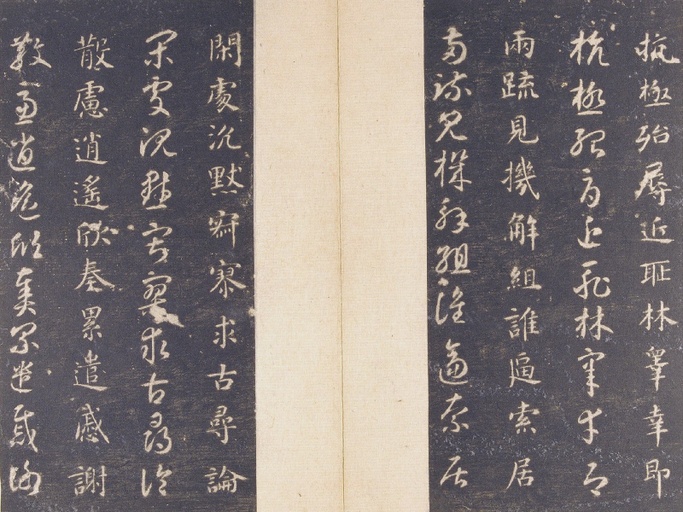 抗極殆辱近耻林皋幸即
抗極殆辱近耻林皋幸即
兩疏見機解組誰逼索居
兩疏見機解組誰逼索居
閑處沉默寂寥求古尋論
閑處沉默寂寥求古尋論
散慮逍遙欣奏累遣慼謝
散慮逍遙欣奏累遣慼謝